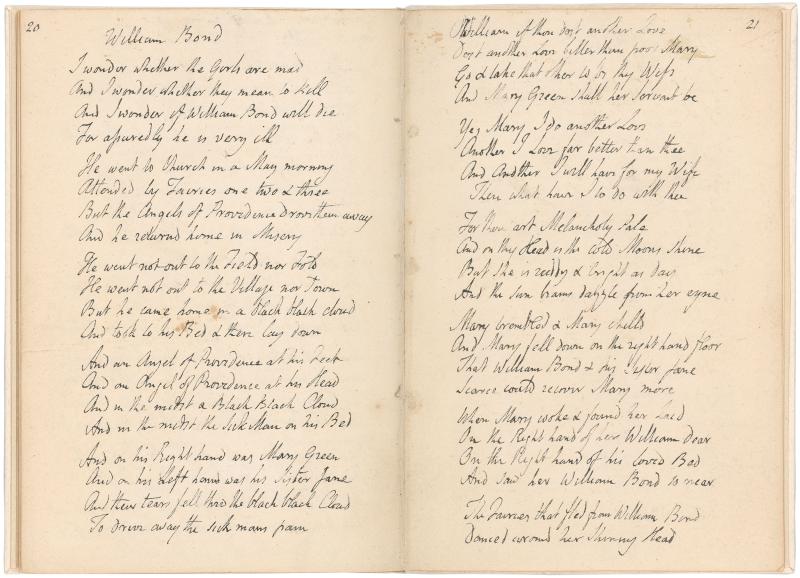 20
William Bond
I wonder whether the Girls are mad
And I wonder whether they mean to kill
And I wonder if William Bond will die
For assuredly he is very ill
He went to Church in a May morning
Attended by Fairies one two & three
But the Angels of Providence drove them away
And he returnd home in Misery
He went not out to the Field nor Fold
He went not out to the Village nor Town
But he came home in a black black cloud
And took to his Bed & there lay down
And an Angel of Providence at his Feet
And an Angel of Providence at his Head
And in the midst a Black Black Cloud
And in the midst the Sick Man on his Bed
And on his Right hand was Mary Green
And on his Left hand was his Sister Jane
And their tears fell thro the black black Cloud
To drive away the sick mans pain
21
William if thou dost another Love
Dost another Love better than poor Mary
Go & take that other to be thy Wife
And Mary Green shall her Servant be
Yes Mary I do another Love
Another I Love far better than thee
And Another I will have for my Wife
Then what have I to do with thee
For thou art Melancholy Pale
And on thy Head is the cold Moons shine
But she is ruddy & bright as day
And the sun beams dazzle from her eyne
Mary trembled & Mary chilld
And Mary fell down on the right hand floor
That William Bond & his Sister Jane
Scarce could recover Mary more
When Mary woke & found her Laid
On the Right hand of her William dear
On the Right hand of his loved Bed
And saw her William Bond so near
The Fairies that fled from William Bond
Danced around her Shining Head